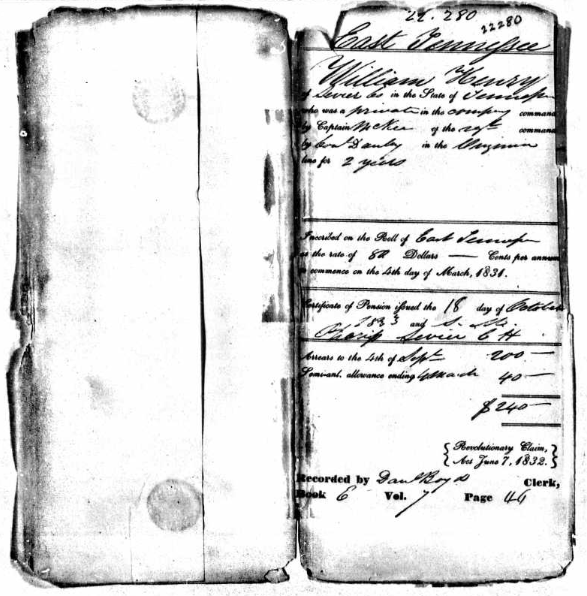 22.280
22280
East Tennessee
William Henry
of Sevier Co in the State of Tennessee
who was a private in the company command
by Captain McKee of the regt command
by Col in the Virginia
line for 2 years
Inscribed on the Roll of East Tennessee
at the rate of 80 Dollars — Cents per annum
to commence on the 4th day of March, 1831.
Certificate of Pension issued the 18 day of October
1833 and
Sevier C H
Arrears to the 4th of Sept 200 —
Semi-anl. allowance ending 4 March 40 —
$240 —
Revolutionary Claim,
Act June 7, 1832.
Recorded by Danl Boyd Clerk,
Book E Vol. 7 Page 44